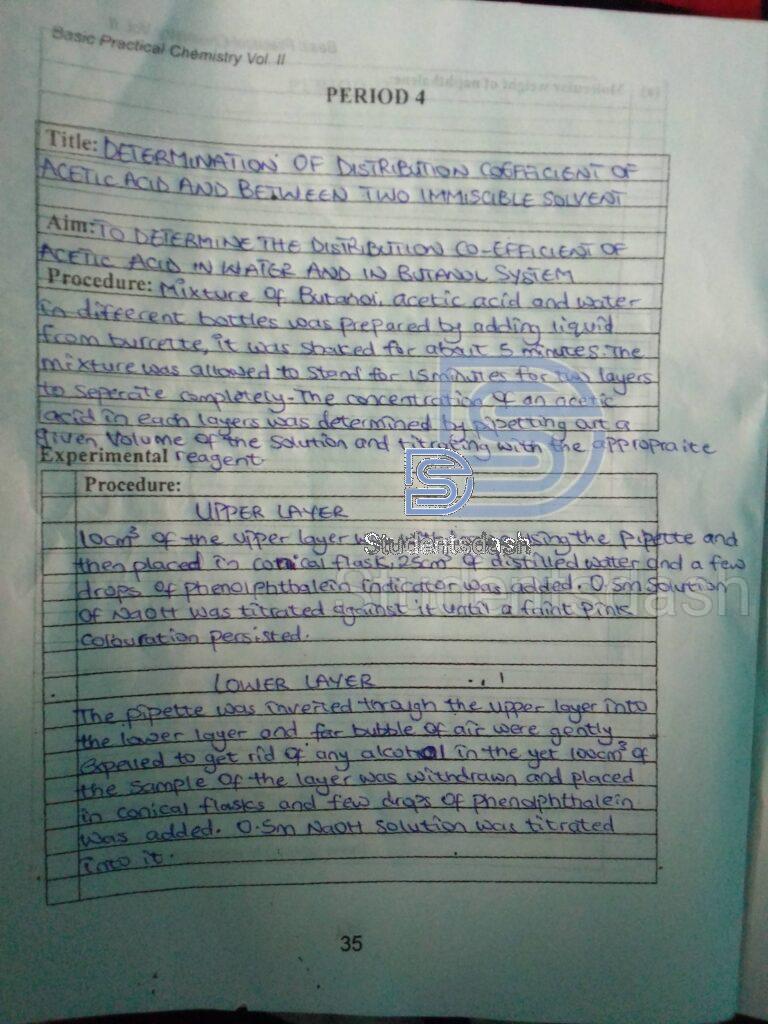 Basic Practical Chemistry Vol. II
PERIOD 4
Title: DETERMINATION OF DISTRIBUTION COEFFICIENT OF
ACETIC ACID AND BETWEEN TWO IMMISCIBLE SOLVENT
Aim: TO DETERMINE THE DISTRIBUTION CO-EFFICIENT OF
ACETIC ACID IN WATER AND IN BUTANOL SYSTEM
Procedure: Mixture of Butanol, acetic acid and water
in different bottles was prepared by adding liquid
from burrette, it was shaked for about 5 minutes. The
mixture was allowed to stand for 15 minutes for two layers
to seperate completely. The concentration of an acetic
acid in each layers was determined by pipetting out a
given volume of the solution and titrating with the appropraite
Experimental reagent.
Procedure:
UPPER LAYER
10cm³ of the upper layer using the pipette and
then placed in conical flask. 25cm³ of distilled water and a few
drops of phenolphthalein indicator was added. 0.5m solution
of NaOH was titrated against it until a faint pink
colouration persisted.
LOWER LAYER
The pipette was inverted through the upper layer into
the lower layer and far bubble of air were gently
expelled to get rid of any alcohol in the yet 100cm³ of
the sample of the layer was withdrawn and placed
in conical flasks and few drops of phenolphthalein
was added. 0.5m NaOH solution was titrated
into it.
35
Studentsdash
Studentsdash